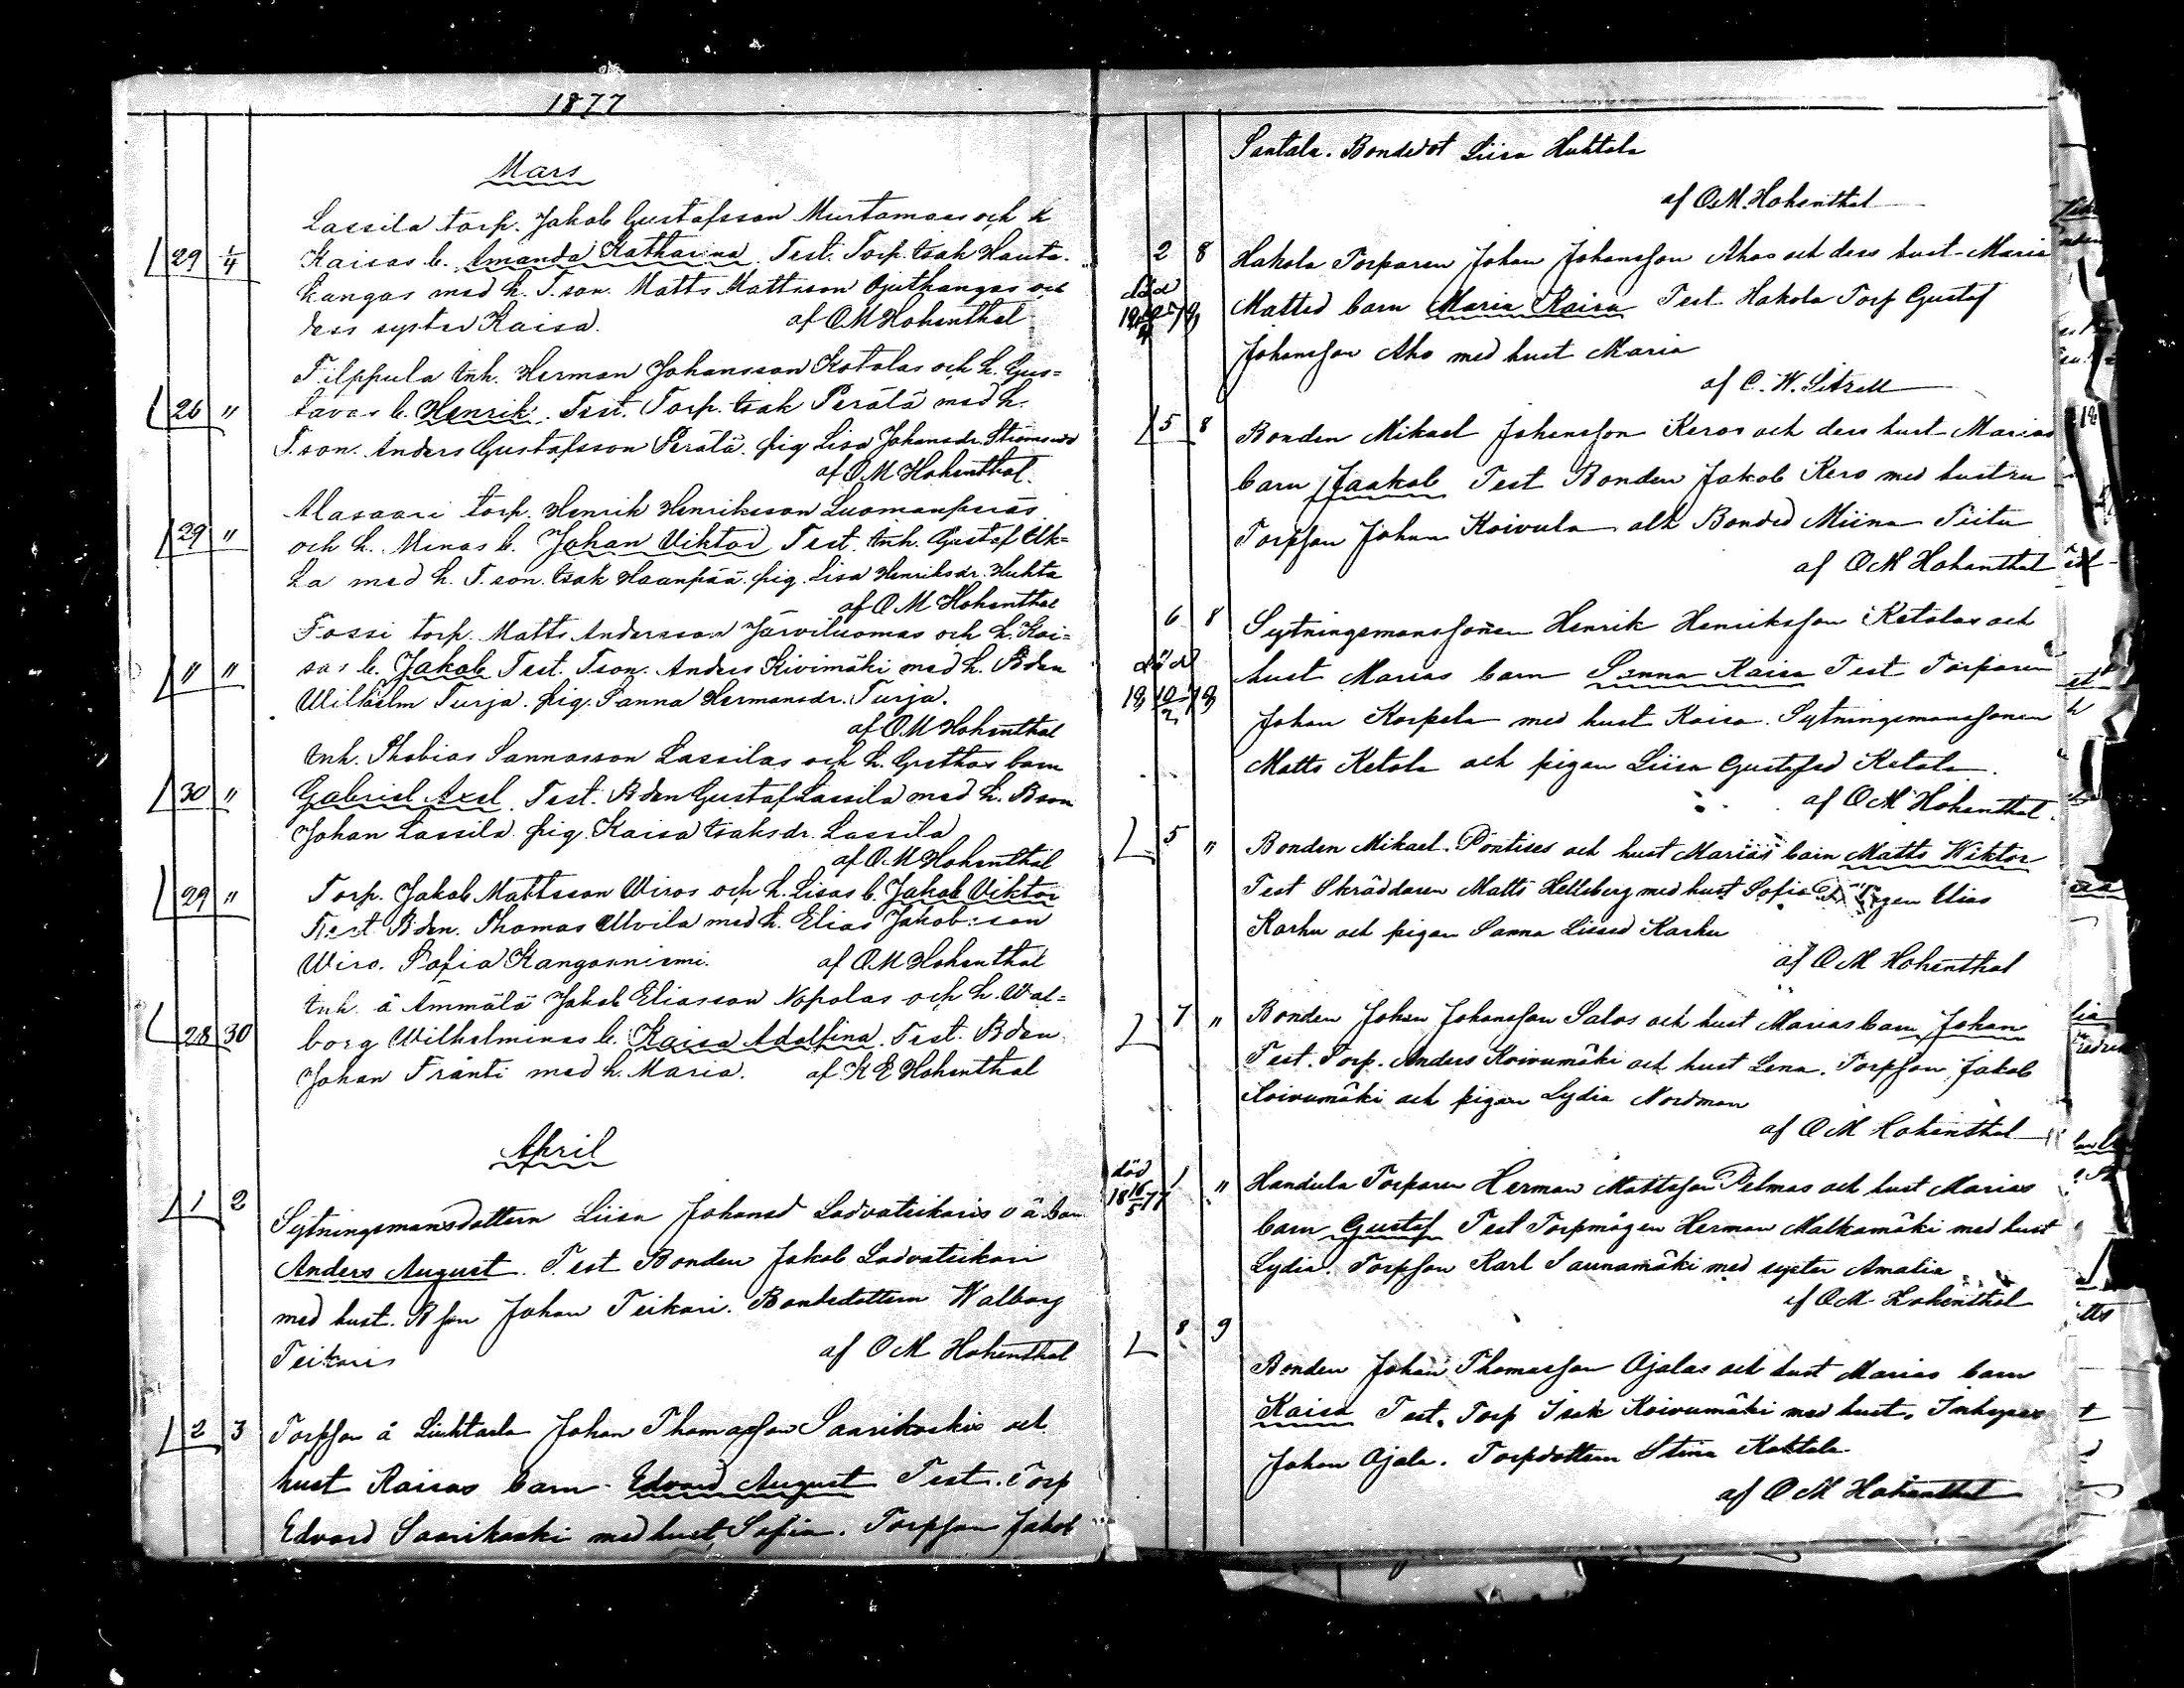 1877
Mars
Lassila torp. Jakob Gustafsson Mustamaas och h
29 1/4 Kaisas b. Amanda Katharina. Test. Torp. Isak Hauta-
kangas med h. T.son. Matts Mattsson Ojuthangas och
dess syster Kaisa. af OM Hohenthal
Filppula Inh. Herman Johansson Kotolas och h. Gus=
26 " tavas b. Henrik. Test. Torp. Isak Perälä med h.
T.son. Anders Gustafsson Perälä. pig Lisa Johansdr.
af OM Hohenthal.
Alasaari torp. Henrik Henriksson Luomanperäs
29 " och h. Minas b. Johan Viktor Test. Inh. Gustaf Uk=
ka med h. T.son. Isak Haanpää. pig. Lisa Henriksdr. Huhta
af OM Hohenthal
Fossi torp. Matts Andersson Järviluomas och h. Kai=
" " sas b. Jakob Test. Tson. Anders Kivimäki med h. Bden
Wilhelm Turja. pig. Sanna Hermansdr. Turja.
af OM Hohenthal
Inh. Thobias Sannasson Lassilas och h. Grethas barn
30 " Gabriel Axel. Test. Bden Gustaf Lassila med h. Bson
Johan Lassila. pig. Kaisa Isaksdr. Lassila
af OM Hohenthal
29 " Torp. Jakob Mattsson Wiros och h. Lisas b. Jakob Viktor
Test Bden. Thomas Ulvila med h. Elias Jakob:son
Wiro. Sofia Kangasniemi. af OM Hohenthal
Inh. å Ämmälä Jakob Eliasson Nopolas och h. Wal=
28 30 borg Wilhelminas b. Kaisa Adolfina. Test. Bden
Johan Fränti med h. Maria. af K E Hohenthal
April
1 2 Sytningsmansdottern Liisa Johansd Ladvateikaris o ä barn
Anders August. Test Bonden Jakob Ladvateikari
med hust. Bson Johan Teikari. Bondedottern Walborg
Teikaris af OM Hohenthal
2 3 Torpson å Liuhtarla Johan Thomasson Saarikoskis och
hust Kaisas barn Edvard August Test. Torp
Edvard Saarikoski med hust Sofia. Torpson Jakob
Santala. Bondedot Liisa Huhtala
af OM Hohenthal
2 8 Hakola Torparen Johan Johansson Ahos och dess hust Maria
död Mattsd barn Maria Kaisa Test. Hakola Torp Gustaf
Johansson Aho med hust Maria
af C. W. Litzell
5 8 Bonden Mikael Johansson Keros och dess hust Marias
barn Jaakob Test Bonden Jakob Kero med hustru
Torpson Johan Koivula och Bonded Miina Tiitu
af OM Hohenthal
6 8 Sytningsmanssonen Henrik Henriksson Ketolas och
död hust Marias barn Sanna Kaisa Test Torparen
18 10/2 78 Johan Korpela med hust Kaisa. Sytningsmanssonen
Matts Ketola och pigan Liisa Gustafsd Ketola.
af OM Hohenthal.
5 " Bonden Mikael Pöntises och hust Marias barn Matts Wiktor
Test Skräddaren Matts Hellsberg med hust Sofia Elias
Karhu och pigan Sanna Liisasd Karhu
af OM Hohenthal
7 " Bonden Johan Johansson Salos och hust Marias barn Johan
Test. Torp. Anders Koivumäki och hust Lena. Torpson Jakob
Koivumäki och pigan Lydia Nordman
af OM Hohenthal
död
18 16/5 77 1 " Handula Torparen Herman Mattsson Pelmas och hust Marias
barn Gustaf Test Torpmågen Herman Malkamäki med hust
Lydia. Torpson Karl Saunamäki med syster Amalia
af OM Hohenthal
8 9 Bonden Johan Thomasson Ojalas och hust Marias barn
Kaisa Test. Torp Isak Koivumäki med hust. Inhyses
Johan Ojala. Torpdottern Stina Kohtala
af OM Hohenthal